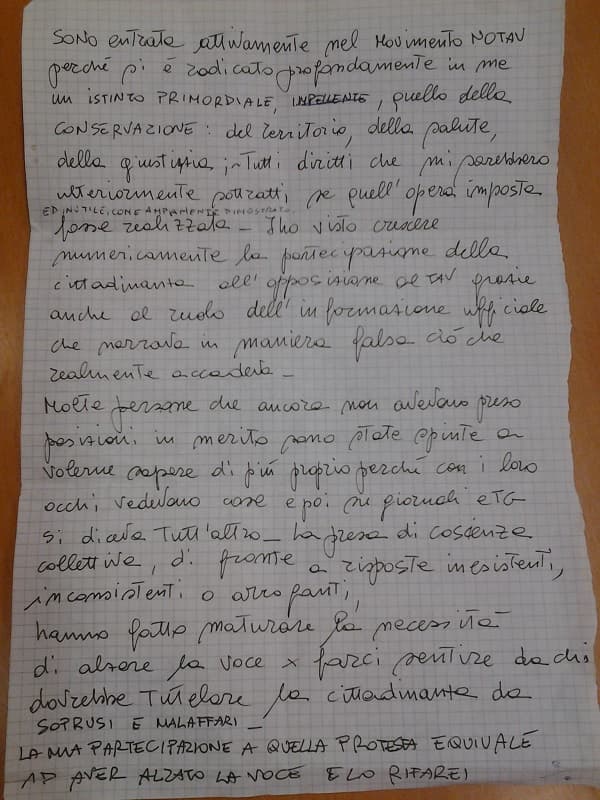 SONO entrata attivamente nel MOVIMENTO NOTAV
perché si é radicato profondamente in me
un ISTINTO PRIMORDIALE, IMPELLENTE, quello della
CONSERVAZIONE: del territorio, della salute,
della giustizia; - Tutti diritti che mi sarebbero
ulteriormente sottratti, se quell'opera imposta
ED INUTILE, COME AMPIAMENTE DIMOSTRATO
fosse realizzata - Ho visto crescere
numericamente la partecipazione della
cittadinanza all'opposizione al TAV grazie
anche al ruolo dell'informazione ufficiale
che narrava in maniera falsa ció che
realmente accadeva -
Molte persone che ancora non avevano preso
posizioni in merito sono state spinte a
volerne sapere di piú proprio perché con i loro
occhi vedevano cose e poi su giornali e TG
si diceva Tutt'altro - La presa di coscienza
collettiva, di fronte a risposte inesistenti,
inconsistenti o arroganti,
hanno fatto maturare la necessitá
di alzare la voce x farci sentire da chi
dovrebbe Tutelare la cittadinanza da
SOPRUSI E MALAFFARI -
LA MIA PARTECIPAZIONE A QUELLA PROTESTA EQUIVALE
AD AVER ALZATO LA VOCE E LO RIFAREI